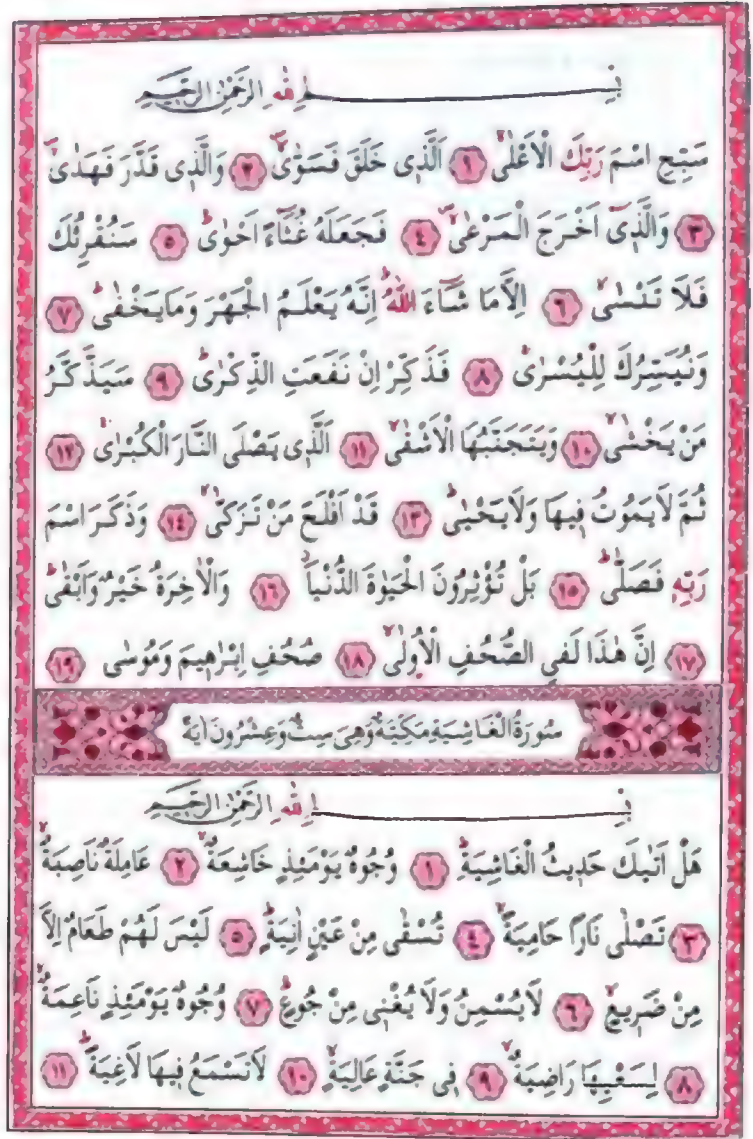 بِسْمِ اللهِ الرَّحْمٰنِ الرَّحِيمِ
سَبِّحِ اسْمَ رَبِّكَ الْاَعْلٰىۙ ﴿١﴾ اَلَّذ۪ى خَلَقَ فَسَوّٰىۙۖ ﴿٢﴾ وَالَّذ۪ى قَدَّرَ فَهَدٰىۙۖ
﴿٣﴾ وَالَّذ۪ٓى اَخْرَجَ الْمَرْعٰىۙۖ ﴿٤﴾ فَجَعَلَهُ غُثَٓاءً اَحْوٰىۜ ﴿٥﴾ سَنُقْرِئُكَ
فَلَا تَنْسٰىۙ ﴿٦﴾ اِلَّا مَا شَٓاءَ اللهُۜ اِنَّهُ يَعْلَمُ الْجَهْرَ وَمَا يَخْفٰىۜ ﴿٧﴾
وَنُيَسِّرُكَ لِلْيُسْرٰىۚ ﴿٨﴾ فَذَكِّرْ اِنْ نَفَعَتِ الذِّكْرٰىۜ ﴿٩﴾ سَيَذَّكَّرُ
مَنْ يَخْشٰىۙ ﴿١٠﴾ وَيَتَجَنَّبُهَا الْاَشْقٰىۙ ﴿١١﴾ اَلَّذ۪ى يَصْلَى النَّارَ الْكُبْرٰىۚ ﴿١٢﴾
ثُمَّ لَا يَمُوتُ ف۪يهَا وَلَا يَحْيٰىۜ ﴿١٣﴾ قَدْ اَفْلَحَ مَنْ تَزَكّٰىۙ ﴿١٤﴾ وَذَكَرَ اسْمَ
رَبِّه۪ فَصَلّٰىۜ ﴿١٥﴾ بَلْ تُؤْثِرُونَ الْحَيٰوةَ الدُّنْيَاۘ ﴿١٦﴾ وَالْاٰخِرَةُ خَيْرٌ وَاَبْقٰىۜ
﴿١٧﴾ اِنَّ هٰذَا لَفِى الصُّحُفِ الْاُو۫لٰىۙ ﴿١٨﴾ صُحُفِ اِبْرٰه۪يمَ وَمُوسٰى ﴿١٩﴾
سُورَةُ الْغَاشِيَةِ مَكِّيَّةٌ وَهِىَ سِتٌّ وَعِشْرُونَ اٰيَةً
بِسْمِ اللهِ الرَّحْمٰنِ الرَّحِيمِ
هَلْ اَتٰيكَ حَد۪يثُ الْغَاشِيَةِۜ ﴿١﴾ وُجُوهٌ يَوْمَئِذٍ خَاشِعَةٌۙ ﴿٢﴾ عَامِلَةٌ نَاصِبَةٌۙ
﴿٣﴾ تَصْلٰى نَارًا حَامِيَةًۙ ﴿٤﴾ تُسْقٰى مِنْ عَيْنٍ اٰنِيَةٍۜ ﴿٥﴾ لَيْسَ لَهُمْ طَعَامٌ اِلَّا
مِنْ ضَر۪يعٍۙ ﴿٦﴾ لَا يُسْمِنُ وَلَا يُغْن۪ى مِنْ جُوعٍۜ ﴿٧﴾ وُجُوهٌ يَوْمَئِذٍ نَاعِمَةٌۙ
﴿٨﴾ لِسَعْيِهَا رَاضِيَةٌۙ ﴿٩﴾ ف۪ى جَنَّةٍ عَالِيَةٍۙ ﴿١٠﴾ لَا تَسْمَعُ ف۪يهَا لَاغِيَةًۜ ﴿١١﴾